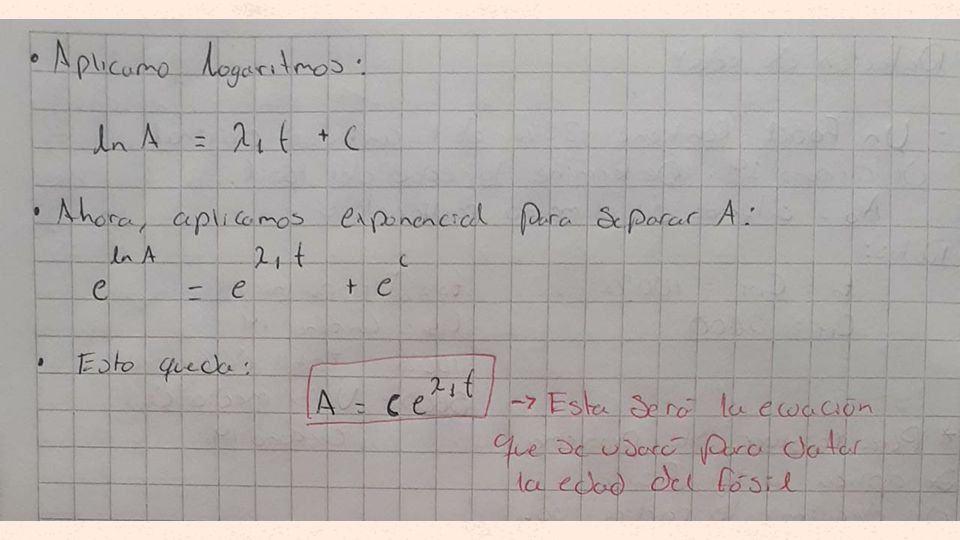 • Aplicamo logaritmos:
ln A = λ₁ t + C
• Ahora, aplicamos exponencial para separar A:
e^{ln A} = e^{λ₁ t} + e^{c}
• Esto queda:
A = C e^{λ₁ t} → Esta será la ecuación
que se usará para datar
la edad del fósil